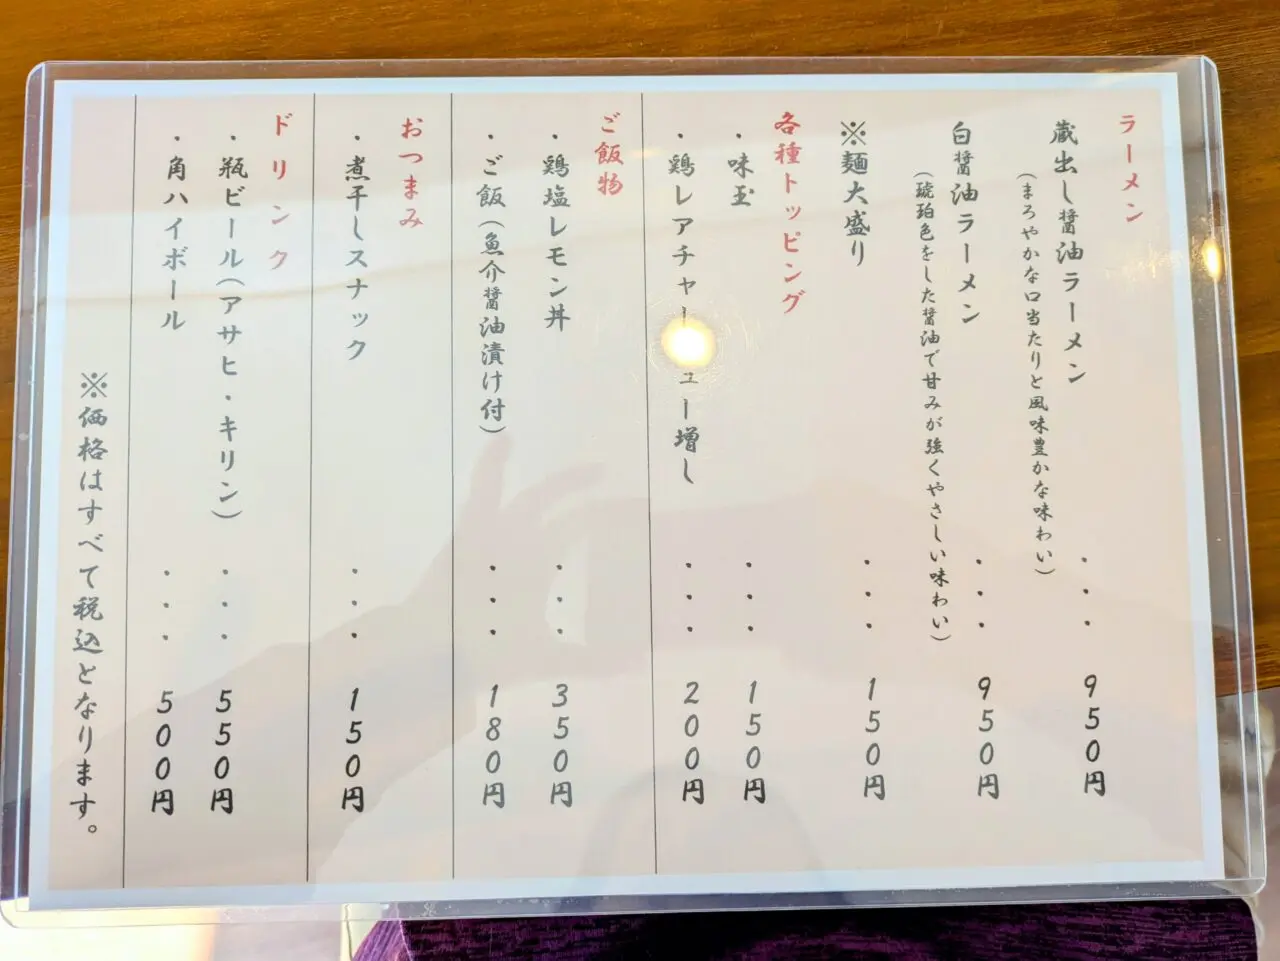 ラーメン
蔵出し醤油ラーメン・・・950円
(まろやかな口当たりと風味豊かな味わい)
白醤油ラーメン・・・950円
(琥珀色をした醤油で甘みが強くやさしい味わい)
※麺大盛り・・・150円
各種トッピング
・味玉・・・150円
・鶏レアチャーシュー増し・・・200円
ご飯物
・鶏塩レモン丼・・・350円
・ご飯(魚介醤油漬け付)・・・180円
おつまみ
・煮干しスナック・・・150円
ドリンク
・瓶ビール(アサヒ・キリン)・・・550円
・角ハイボール・・・500円
※価格はすべて税込となります。